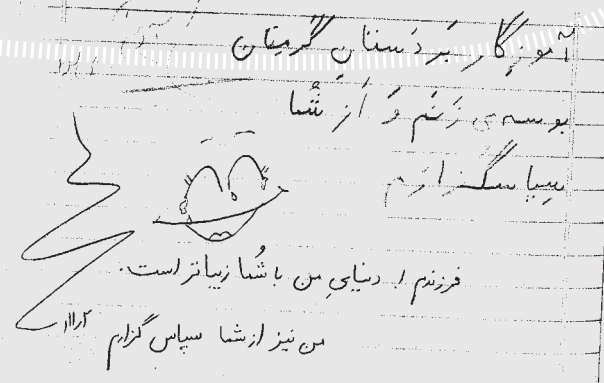 آموزگار بَر دَستانِ گرمتان
بوسه می زَنَم وَ اَز شُما
سپاسگزارم
فرزندم ! دنیایِ من با شُما زیباتر است.
من نیز از شما سپاس گزارم